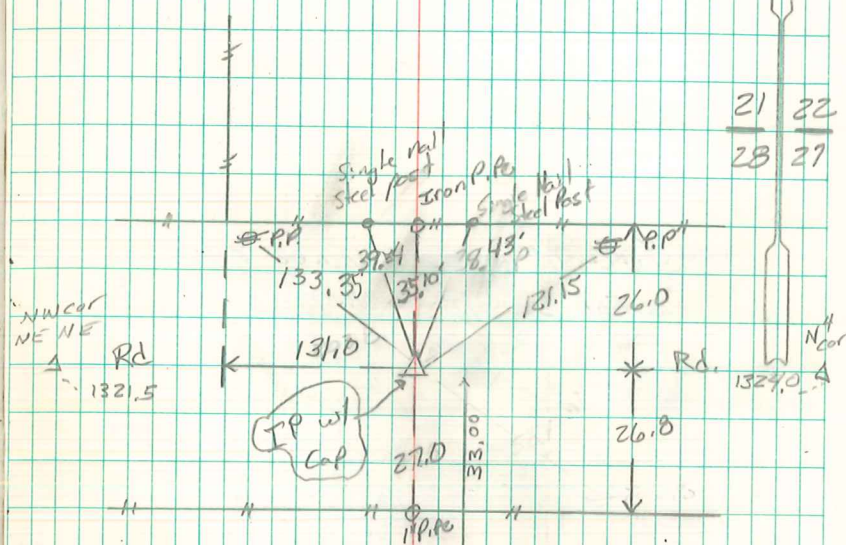 21 22
28 27
Single Nail
Steel post
Iron Pipe
Single Nail
Steel Post
P.P.
P.P.
39.
35.10'
8.43'
133.35
121.15
26.0
NW cor
NE NE
Rd
1321.5
131.0
Rd.
N
cor
1324.0
IP w/
Cap
27.0
33.00
26.8
1" Pipe